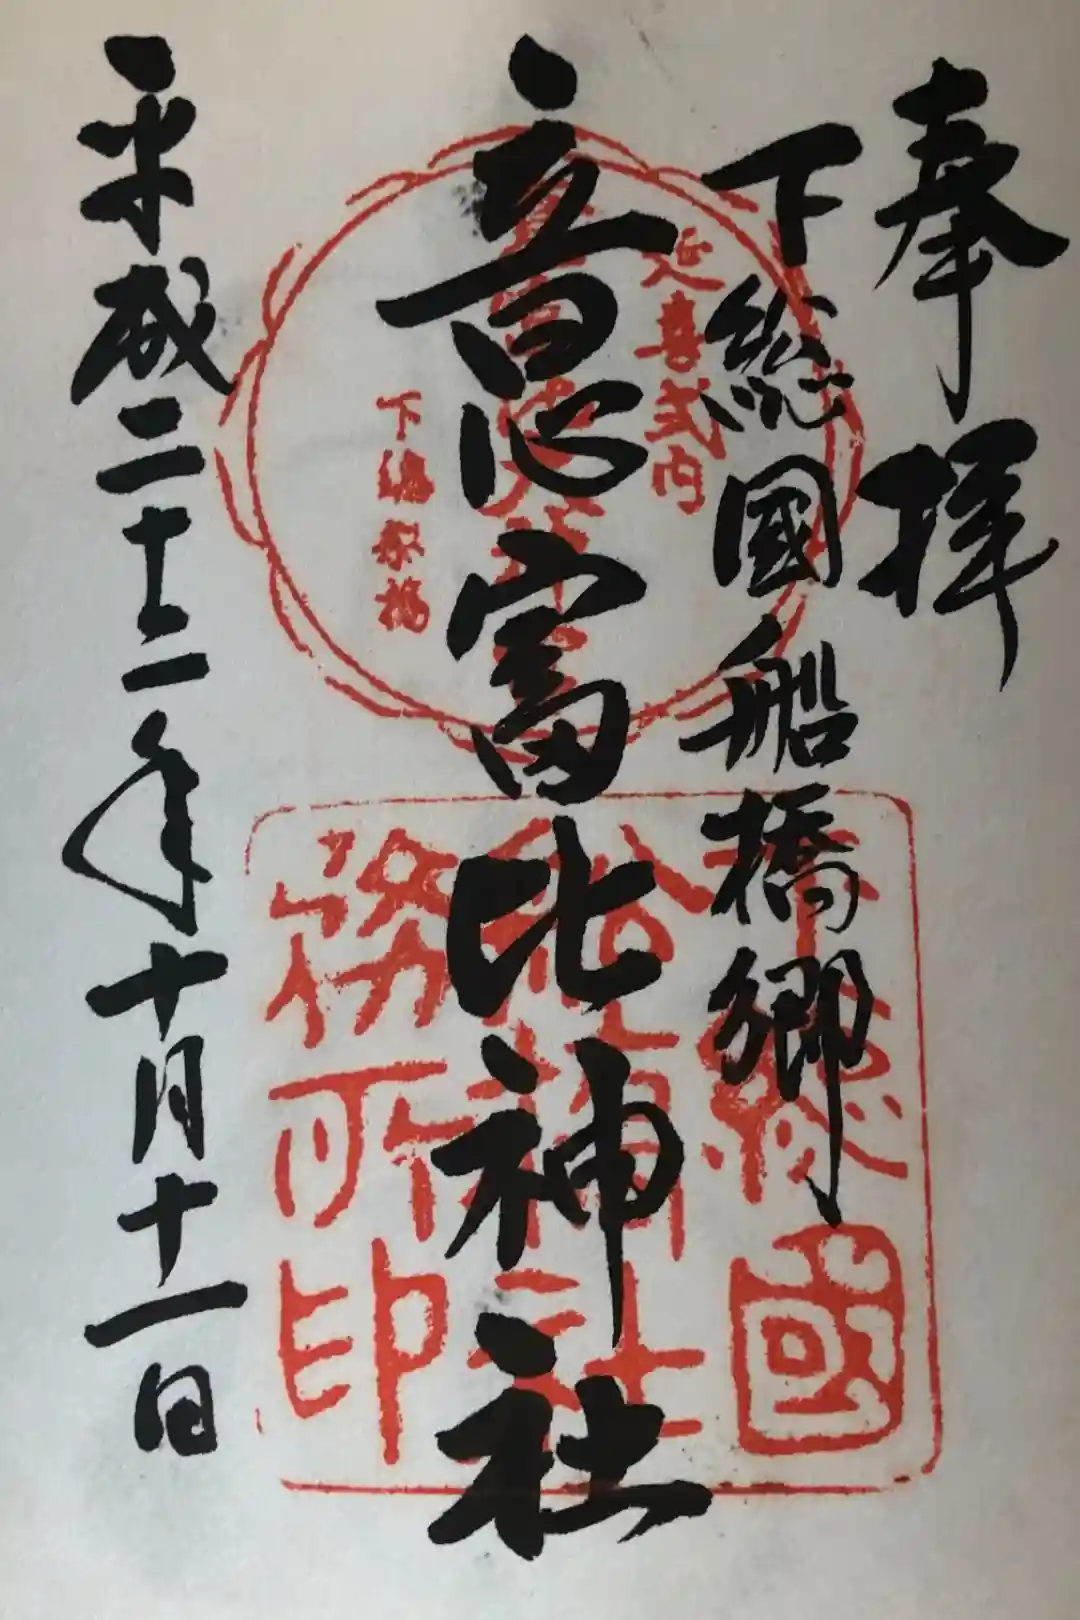 奉拝
下総國船橋郷
意富比神社
平成二十二年十月十一日
延喜式内
下總船橋
下總國
船橋神社
務所印